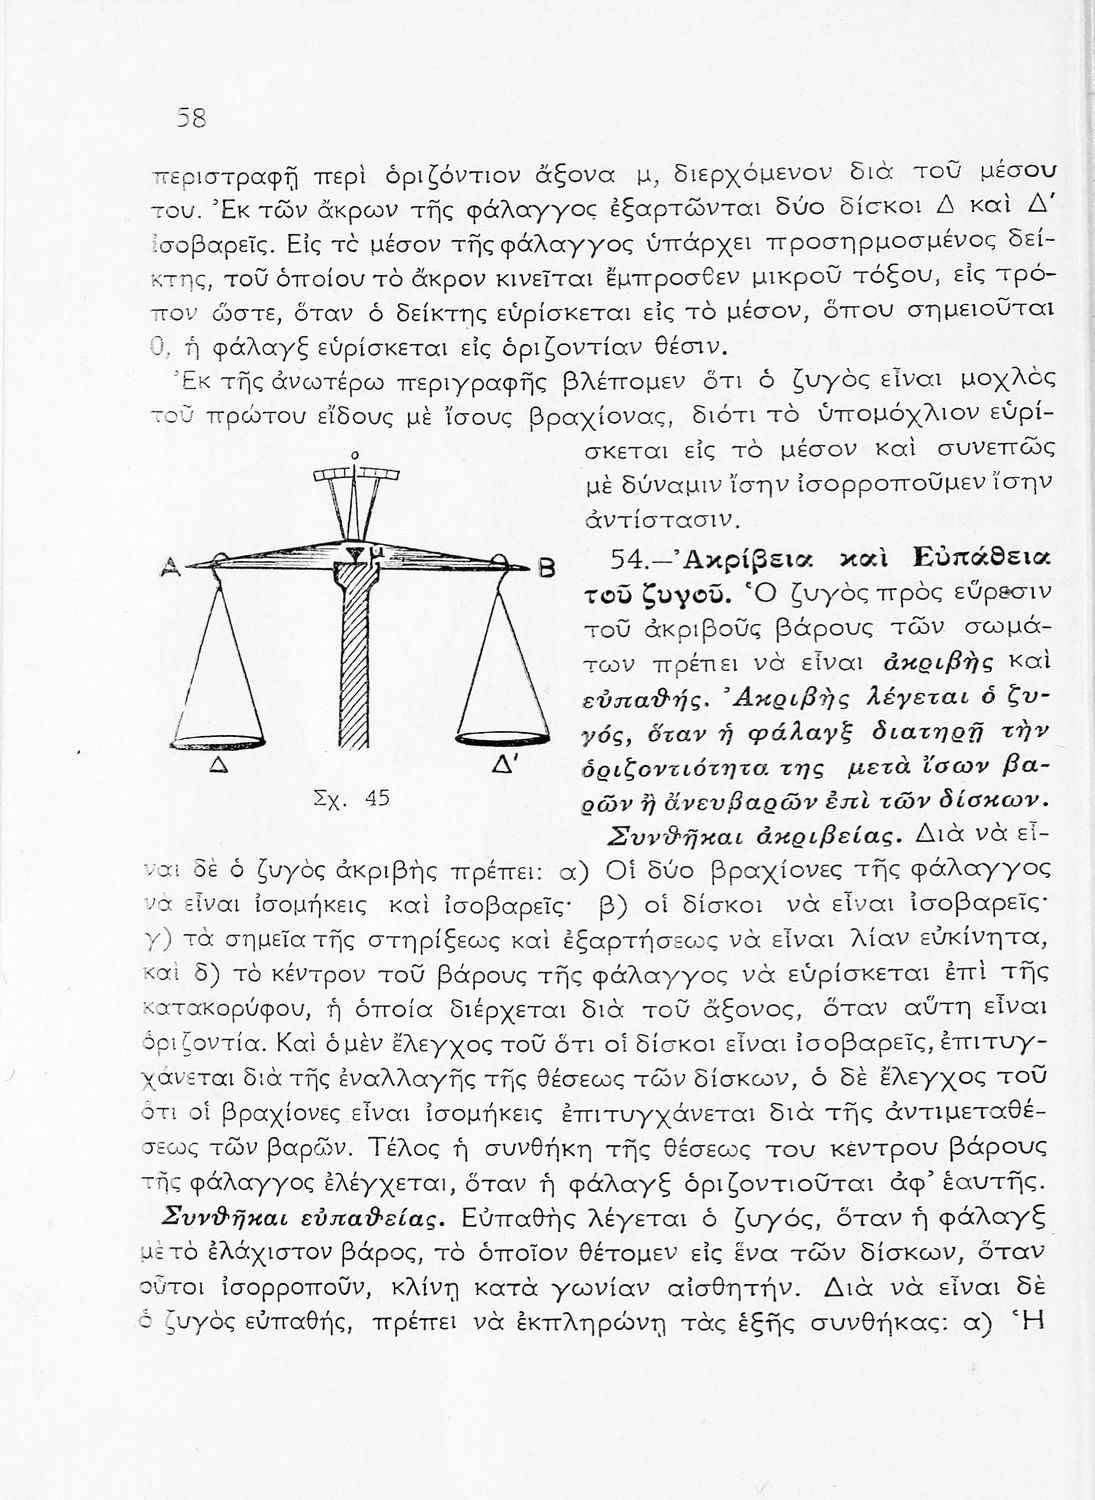 58
περιστραφῇ περὶ ὁριζόντιον ἄξονα μ, διερχόμενον διὰ τοῦ μέσου
του. Ἐκ τῶν ἄκρων τῆς φάλαγγος ἐξαρτῶνται δύο δίσκοι Δ καὶ Δ'
ἰσοβαρεῖς. Εἰς τὸ μέσον τῆς φάλαγγος ὑπάρχει προσηρμοσμένος δεί-
κτης, τοῦ ὁποίου τὸ ἄκρον κινεῖται ἔμπροσθεν μικροῦ τόξου, εἰς τρό-
πον ὥστε, ὅταν ὁ δείκτης εὑρίσκεται εἰς τὸ μέσον, ὅπου σημειοῦται
0, ἡ φάλαγξ εὑρίσκεται εἰς ὁριζοντίαν θέσιν.
Ἐκ τῆς ἀνωτέρω περιγραφῆς βλέπομεν ὅτι ὁ ζυγὸς εἶναι μοχλὸς
τοῦ πρώτου εἴδους μὲ ἴσους βραχίονας, διότι τὸ ὑπομόχλιον εὑρί-
σκεται εἰς τὸ μέσον καὶ συνεπῶς
μὲ δύναμιν ἴσην ἰσορροποῦμεν ἴσην
ἀντίστασιν.
ο
Α
μ
Β
Δ
Δ'
Σχ. 45
54.—Ἀκρίβεια καὶ Εὐπάθεια
τοῦ ζυγοῦ. Ὁ ζυγὸς πρὸς εὕρεσιν
τοῦ ἀκριβοῦς βάρους τῶν σωμά-
των πρέπει νὰ εἶναι ἀκριβὴς καὶ
εὐπαθής. Ἀκριβὴς λέγεται ὁ ζυ-
γός, ὅταν ἡ φάλαγξ διατηρῇ τὴν
ὁριζοντιότητα της μετὰ ἴσων βα-
ρῶν ἢ ἄνευ βαρῶν ἐπὶ τῶν δίσκων.
Συνθῆκαι ἀκριβείας. Διὰ νὰ εἶ-
ναι δὲ ὁ ζυγὸς ἀκριβὴς πρέπει: α) Οἱ δύο βραχίονες τῆς φάλαγγος
νὰ εἶναι ἰσομήκεις καὶ ἰσοβαρεῖς· β) οἱ δίσκοι νὰ εἶναι ἰσοβαρεῖς·
γ) τὰ σημεῖα τῆς στηρίξεως καὶ ἐξαρτήσεως νὰ εἶναι λίαν εὐκίνητα,
καὶ δ) τὸ κέντρον τοῦ βάρους τῆς φάλαγγος νὰ εὑρίσκεται ἐπὶ τῆς
κατακορύφου, ἡ ὁποία διέρχεται διὰ τοῦ ἄξονος, ὅταν αὕτη εἶναι
ὁριζοντία. Καὶ ὁ μὲν ἔλεγχος τοῦ ὅτι οἱ δίσκοι εἶναι ἰσοβαρεῖς, ἐπιτυγ-
χάνεται διὰ τῆς ἐναλλαγῆς τῆς θέσεως τῶν δίσκων, ὁ δὲ ἔλεγχος τοῦ
ὅτι οἱ βραχίονες εἶναι ἰσομήκεις ἐπιτυγχάνεται διὰ τῆς ἀντιμεταθέ-
σεως τῶν βαρῶν. Τέλος ἡ συνθήκη τῆς θέσεως του κέντρου βάρους
τῆς φάλαγγος ἐλέγχεται, ὅταν ἡ φάλαγξ ὁριζοντιοῦται ἀφ' ἑαυτῆς.
Συνθῆκαι εὐπαθείας. Εὐπαθὴς λέγεται ὁ ζυγός, ὅταν ἡ φάλαγξ
μὲ τὸ ἐλάχιστον βάρος, τὸ ὁποῖον θέτομεν εἰς ἕνα τῶν δίσκων, ὅταν
οὗτοι ἰσορροποῦν, κλίνῃ κατὰ γωνίαν αἰσθητήν. Διὰ νὰ εἶναι δὲ
ὁ ζυγὸς εὐπαθής, πρέπει νὰ ἐκπληρώνῃ τὰς ἑξῆς συνθήκας: α) Ἡ